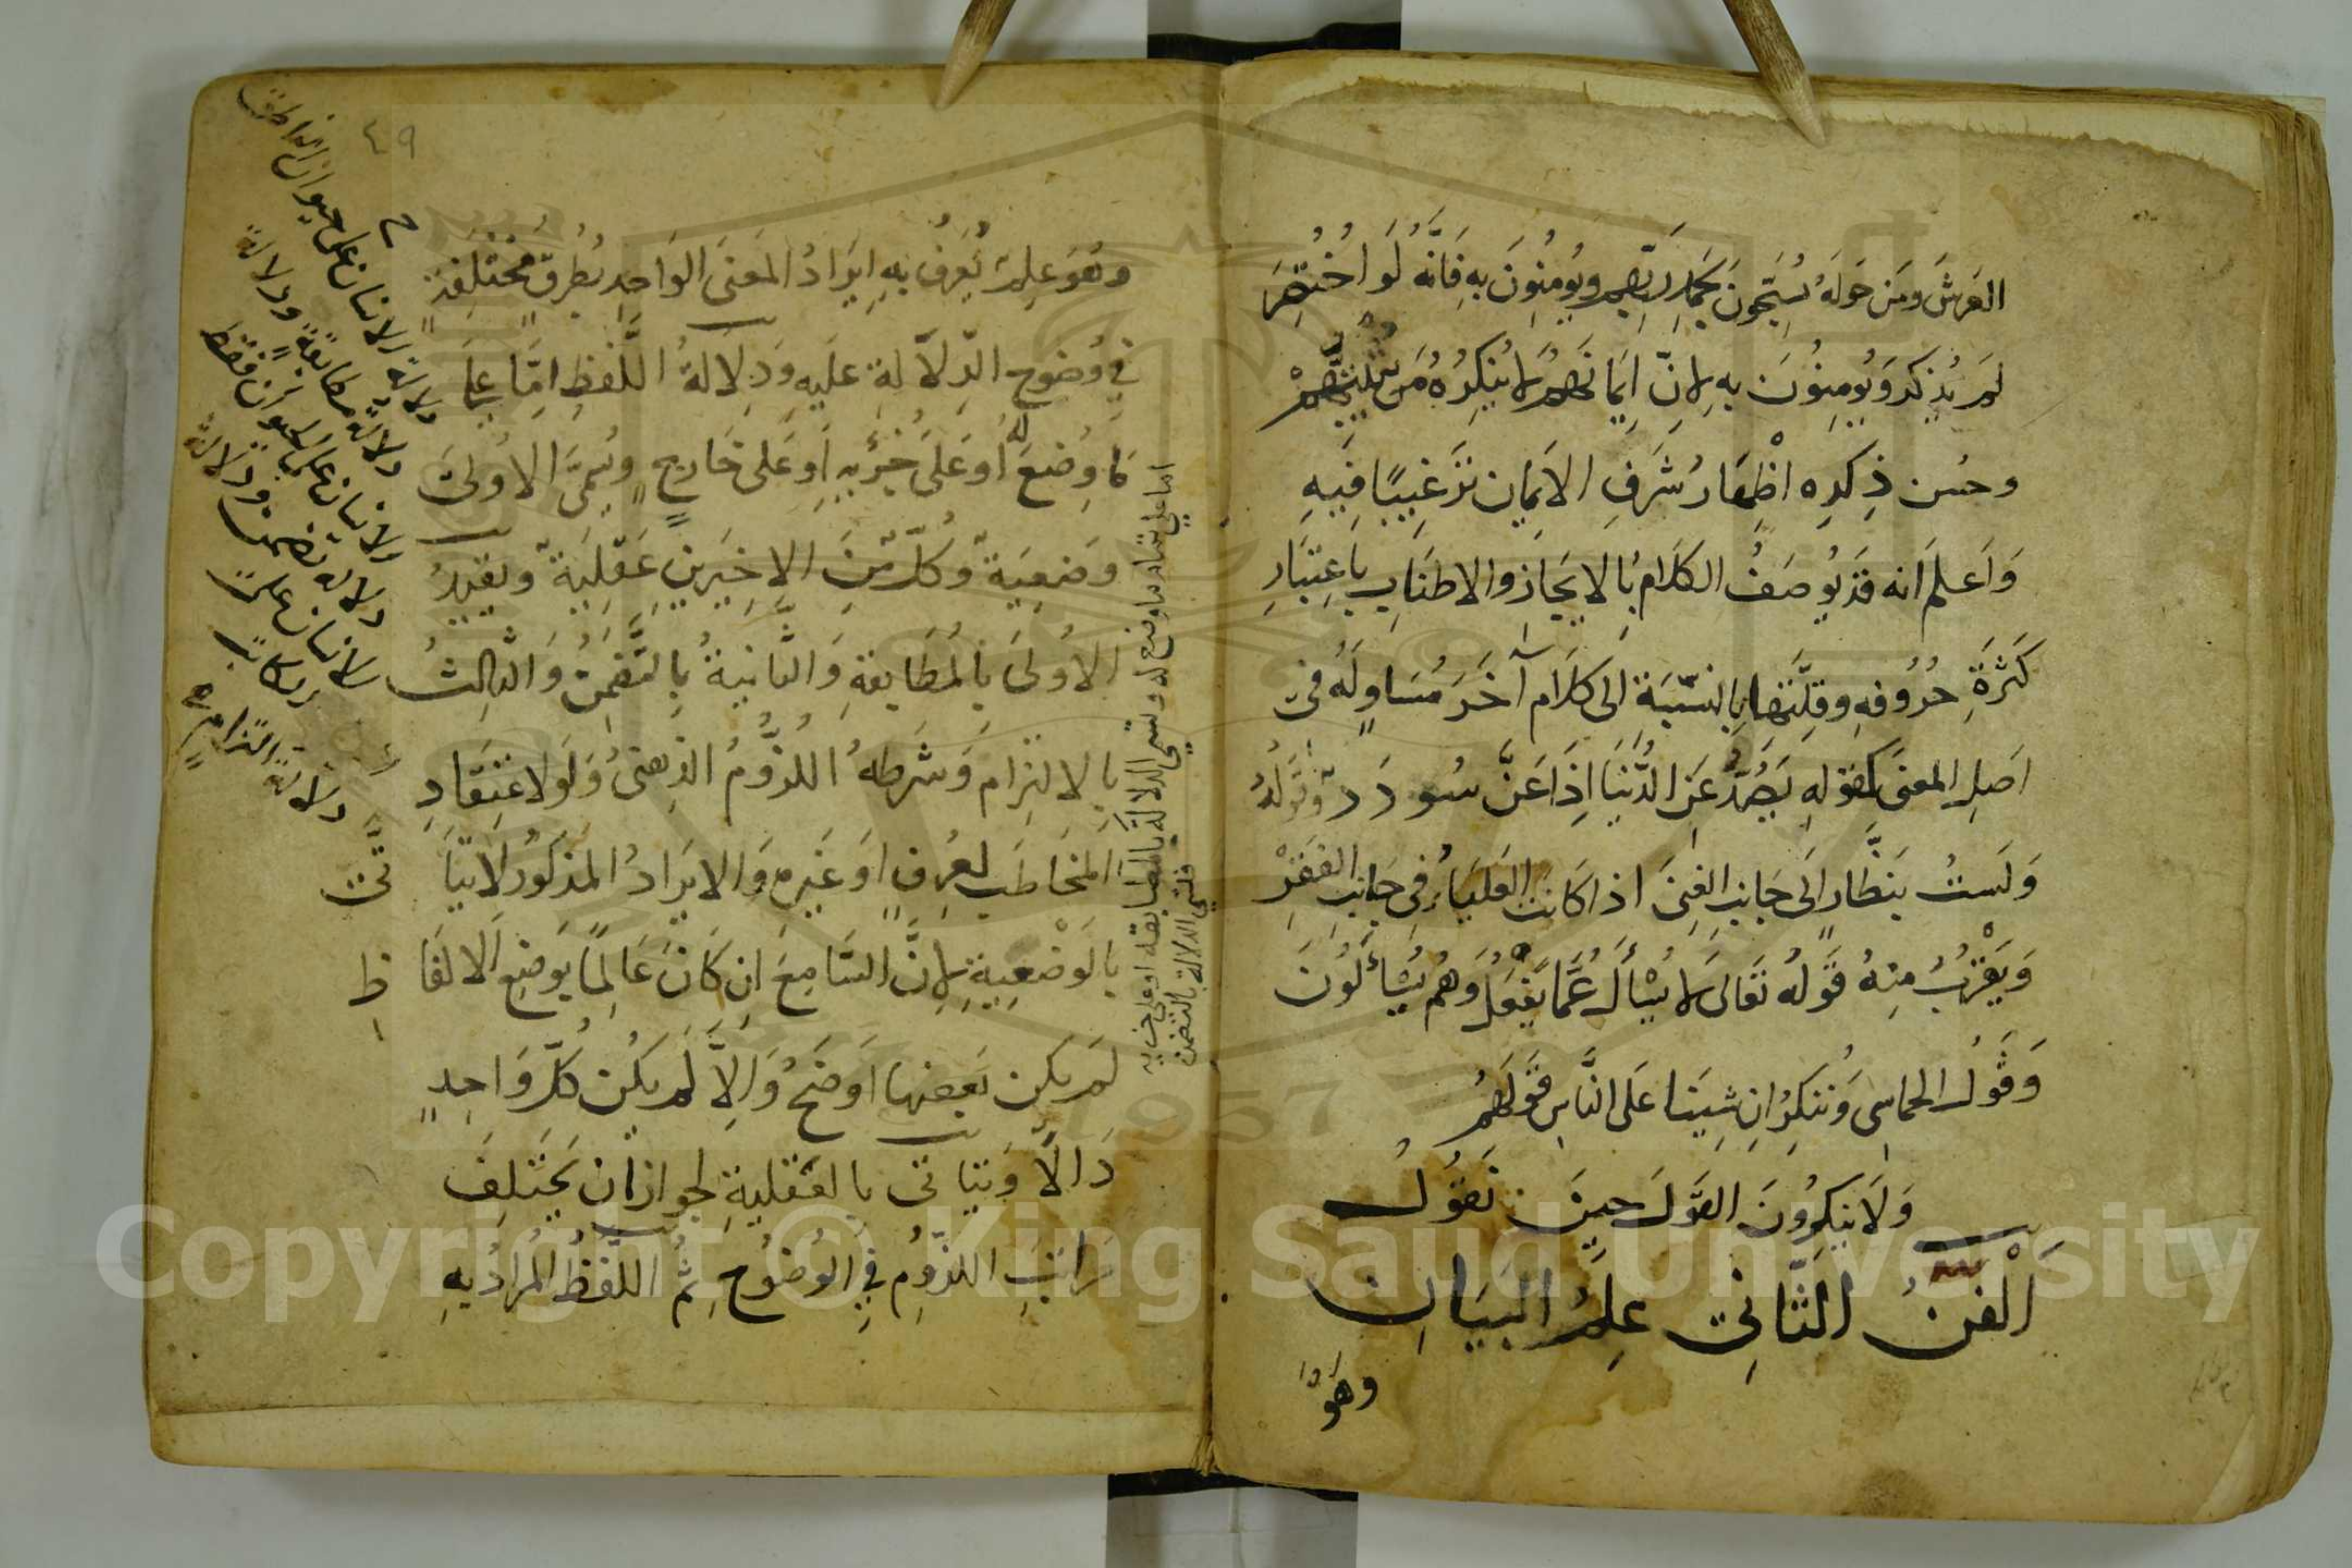 العَرشَ ومَن حَولَهُ يُسَبِّحُونَ بِحَمدِ رَبِّهِم ويُومِنُونَ بِهِ فَانَّهُ لَو اُختُصِرَ
لَم يُذكَر وَيُومِنُونَ بِهِ لاِنَّ اِيمَانَهُم لاَ يُنكِرُهُ مَن يُثبِتُهُم
وحُسن ذِكرِه اظهَارُ شَرَفِ الاِيمان تَرغِيبًا فِيهِ
وَاعلم انه قَد يُوصَفُ الكَلاَمُ بِالاِيجَازِ والاطنَابِ بِاعتِبَارِ
كَثرَةِ حُرُوفِهِ وقِلَّتِهَا بِالنِّسبَةِ الى كَلاَم آخَرَ مُسَاوٍ لَهُ فى
اَصلِ المعنىَ كَقَولِهِ يَصُدُّ عَنِ الدُّنيَا اِذَا عَنَّ سُودَدُ وَقَولُهُ
وَلَستُ بِنَظَّارٍ اِلَى جَانِبِ الغِنىَ اذا كَانت العَليَاءُ فِى جَانِبِ الفَقرِ
وَيَقرُبُ مِنهُ قَولُهُ تَعَالى لاَ يُسْأَلُ عَمَّا يَفعَلُ وَهُم يُسْأَلُونَ
وَقَولُ الحماسِى وَنُنكِرُ اِن شِينَا عَلَى النَّاسِ قَولَهُم
وَلاَ يُنكِرُونَ القَولَ حِينَ نَقُولُ
اَلْفَنُّ الثَّانِى عِلمُ البَيَانِ
وهُوَ
٤٩
وهُوَ عِلمٌ يُعرَفُ بِهِ اِيرَادُ المعَنىَ الوَاحِدِ بِطُرقٍ مُختَلِفَةٍ
فِي وُضوحِ الدِّلاَلةِ عَلَيهِ وَدِلاَلةُ اللَّفظِ امَّا عِلىَ
مَا وُضِعَ لَهُ اَو عَلَى جُزئِهِ اَو عَلى خَارِجٍ وتُسمَّى الاُولىَ
وَضعِيَةً وَكُلٌّ مِّنَ الاَخِيرَينِ عَقلِيَةً وتقيدُ
الاُولىَ بِالمُطَابقةِ وَالثانيةُ بِالتَّضَمُّنِ وَالثالِثُ
بِالالتِزامِ وَشَرطُهُ اللُّزُومُ الذِهنىُ وَلَو لاعتِقَادِ
المخَاطَبِ لعُرفٍ اوَ غَيرِهِ وَالايرَادُ المذكُورُ لاَ يتَاَتَّى
بِالوَضْعِيةِ لاِنَّ السَّامِعَ اِن كَانَ عَالِمًا بِوَضعِ الالفَاظِ
لَم يكن بَعضها اَوضَحُ وَاِلاَّ لَم يكُن كُلُّ وَاحِدٍ
دَالاًّ وَيتَاتى بِالعَقليةِ لجواز ان يَختَلِفَ
مَراتِبُ اللُّزُومِ فِي الوُضوحِ ثُمَّ اللَّفظُ المُرادُ بِهِ
دلالة الانسان على حيوان الناطق
دلالة مطابقة ودلالة
الانسان على الحيوان فقط
دلالة تضمن ودلالة
الانسان على
دلالة التزام
اما على تمام ما وضع له وتسمى الدلالة بالمطابقة او على جزئه
فتسمى الدلالة بالتضمن